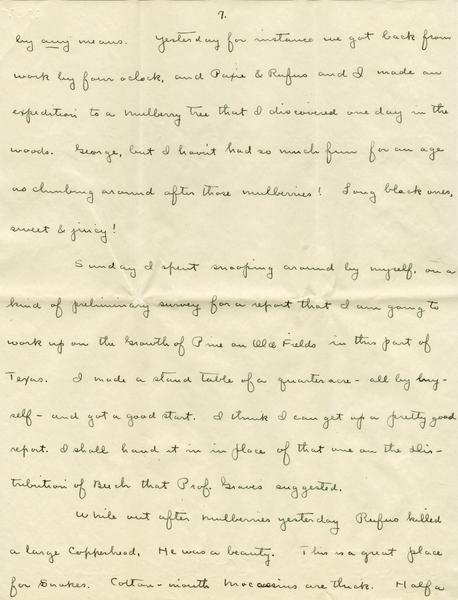 7.
by any means. Yesterday for instance we got back from
work by four oclock, and Paxie & Rufus and I made an
expedition to a mulberry tree that I discovered one day in the
woods. George, but I havn't had so much fun for an age
as climbing around after those mulberries! Long black ones,
sweet & juicy!
Sunday I spent snooping around by myself, on a
kind of preliminary survey for a report that I am going to
work up on the Growth of Pine on Old Fields in this part of
Texas. I made a stand table of a quarter acre - all by my-
self - and got a good start. I think I can get up a pretty good
report. I shall hand it in in place of that one on the Dis-
tribution of Beech that Prof. Graves suggested.
While out after mulberries yesterday Rufus killed
a large Copperhead. He was a beauty. This is a great place
for Snakes. Cotton-mouth Moccasins are thick. Half a